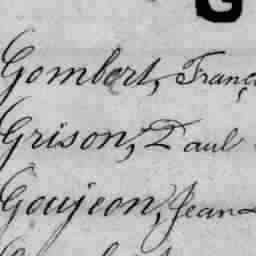 G
Gombert, Franç
Grison, Paul
Goujeon, Jean-